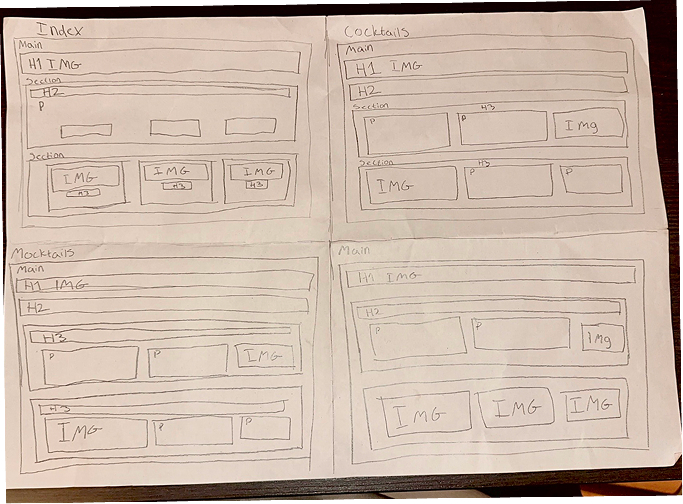 Index
Main
H1 IMG
Section
H2
P
Section
IMG IMG IMG
H3 H3 H3
Cocktails
Main
H1 IMG
H2
Section H3
P P Img
Section H3
IMG P P
Mocktails
Main
H1 IMG
H2
H3
P P IMG
H3
IMG P P
Main
H1 IMG
H2
P P Img
IMG IMG IMG